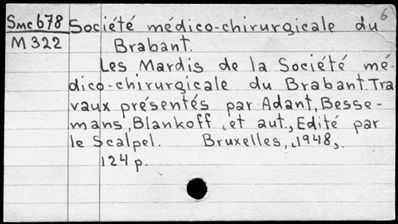 6
Smc b78 Société médico-chirurgicale du
M 322 Brabant.
Les Mardis de la Société mé-
dico-chirurgicale du Brabant. Tra
vaux présentés par Adant, Besse-
mans, Blankoff, et aut., Edité par
le Scalpel. Bruxelles,,1948,.
124 p.